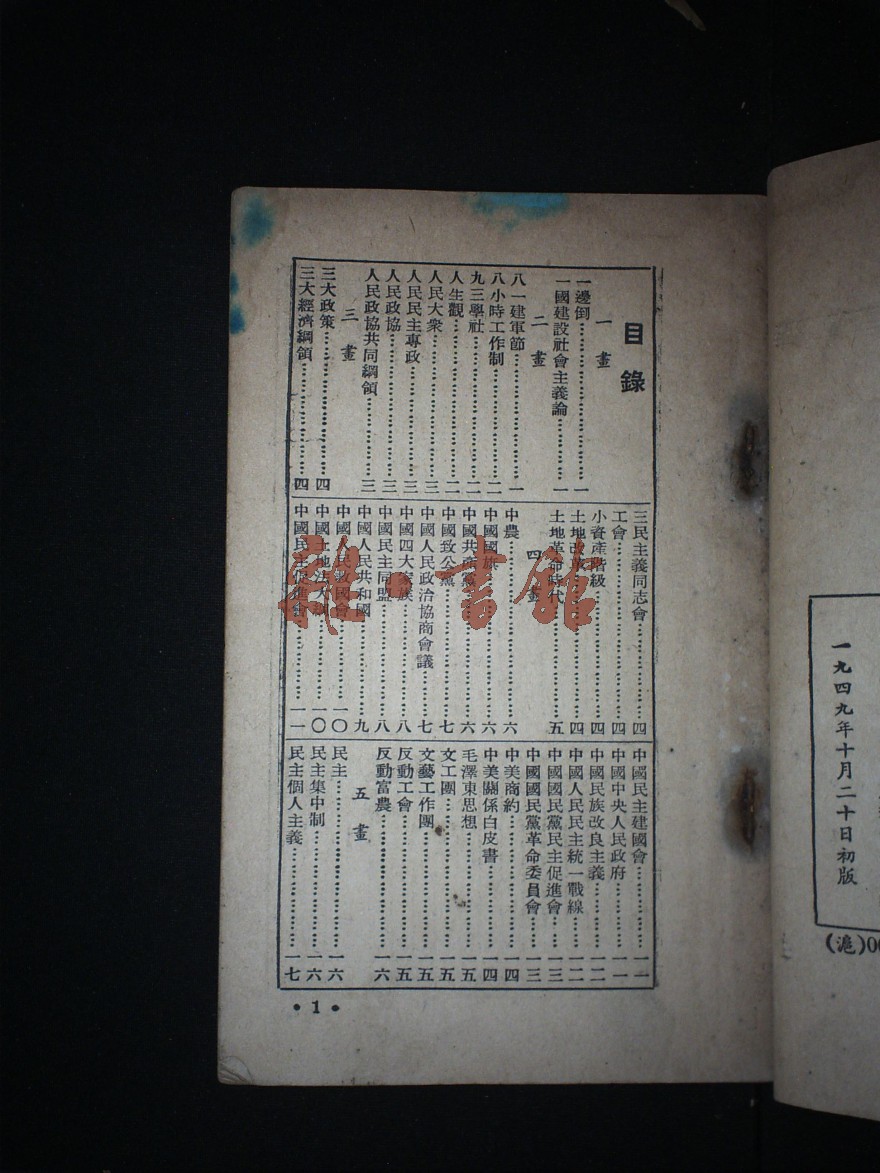 目錄
一畫
一邊倒……一
一國建設社會主義論……一
二畫
八一建軍節……一
八小時工作制……二
九三學社……二
人生觀……二
人民大衆……三
人民民主專政……三
人民政協……三
人民政協共同綱領……三
三畫
三大政策……四
三大經濟綱領……四
三民主義同志會……四
工會……四
小資產階級……四
土地改革……四
土地革命時代……五
四畫
中農……六
中國國旗……六
中國共產黨……六
中國致公黨……七
中國人民政治協商會議……七
中國四大家族……八
中國民主同盟……八
中國人民共和國……九
中國人民救國會……一〇
中國土地法大綱……一〇
中國民主促進會……一一
中國民主建國會……一一
中國中央人民政府……一一
中國民族改良主義……一二
中國人民民主統一戰線……一二
中國國民黨民主促進會……一三
中國國民黨革命委員會……一三
中美商約……一四
中美關係白皮書……一四
毛澤東思想……一五
文工團……一五
文藝工作團……一五
反動工會……一五
反動富農……一六
五畫
民主……一六
民主集中制……一六
民主個人主義……一七
• 1 •
一九四九年十月二十日初版
(滬)00
雜·書館